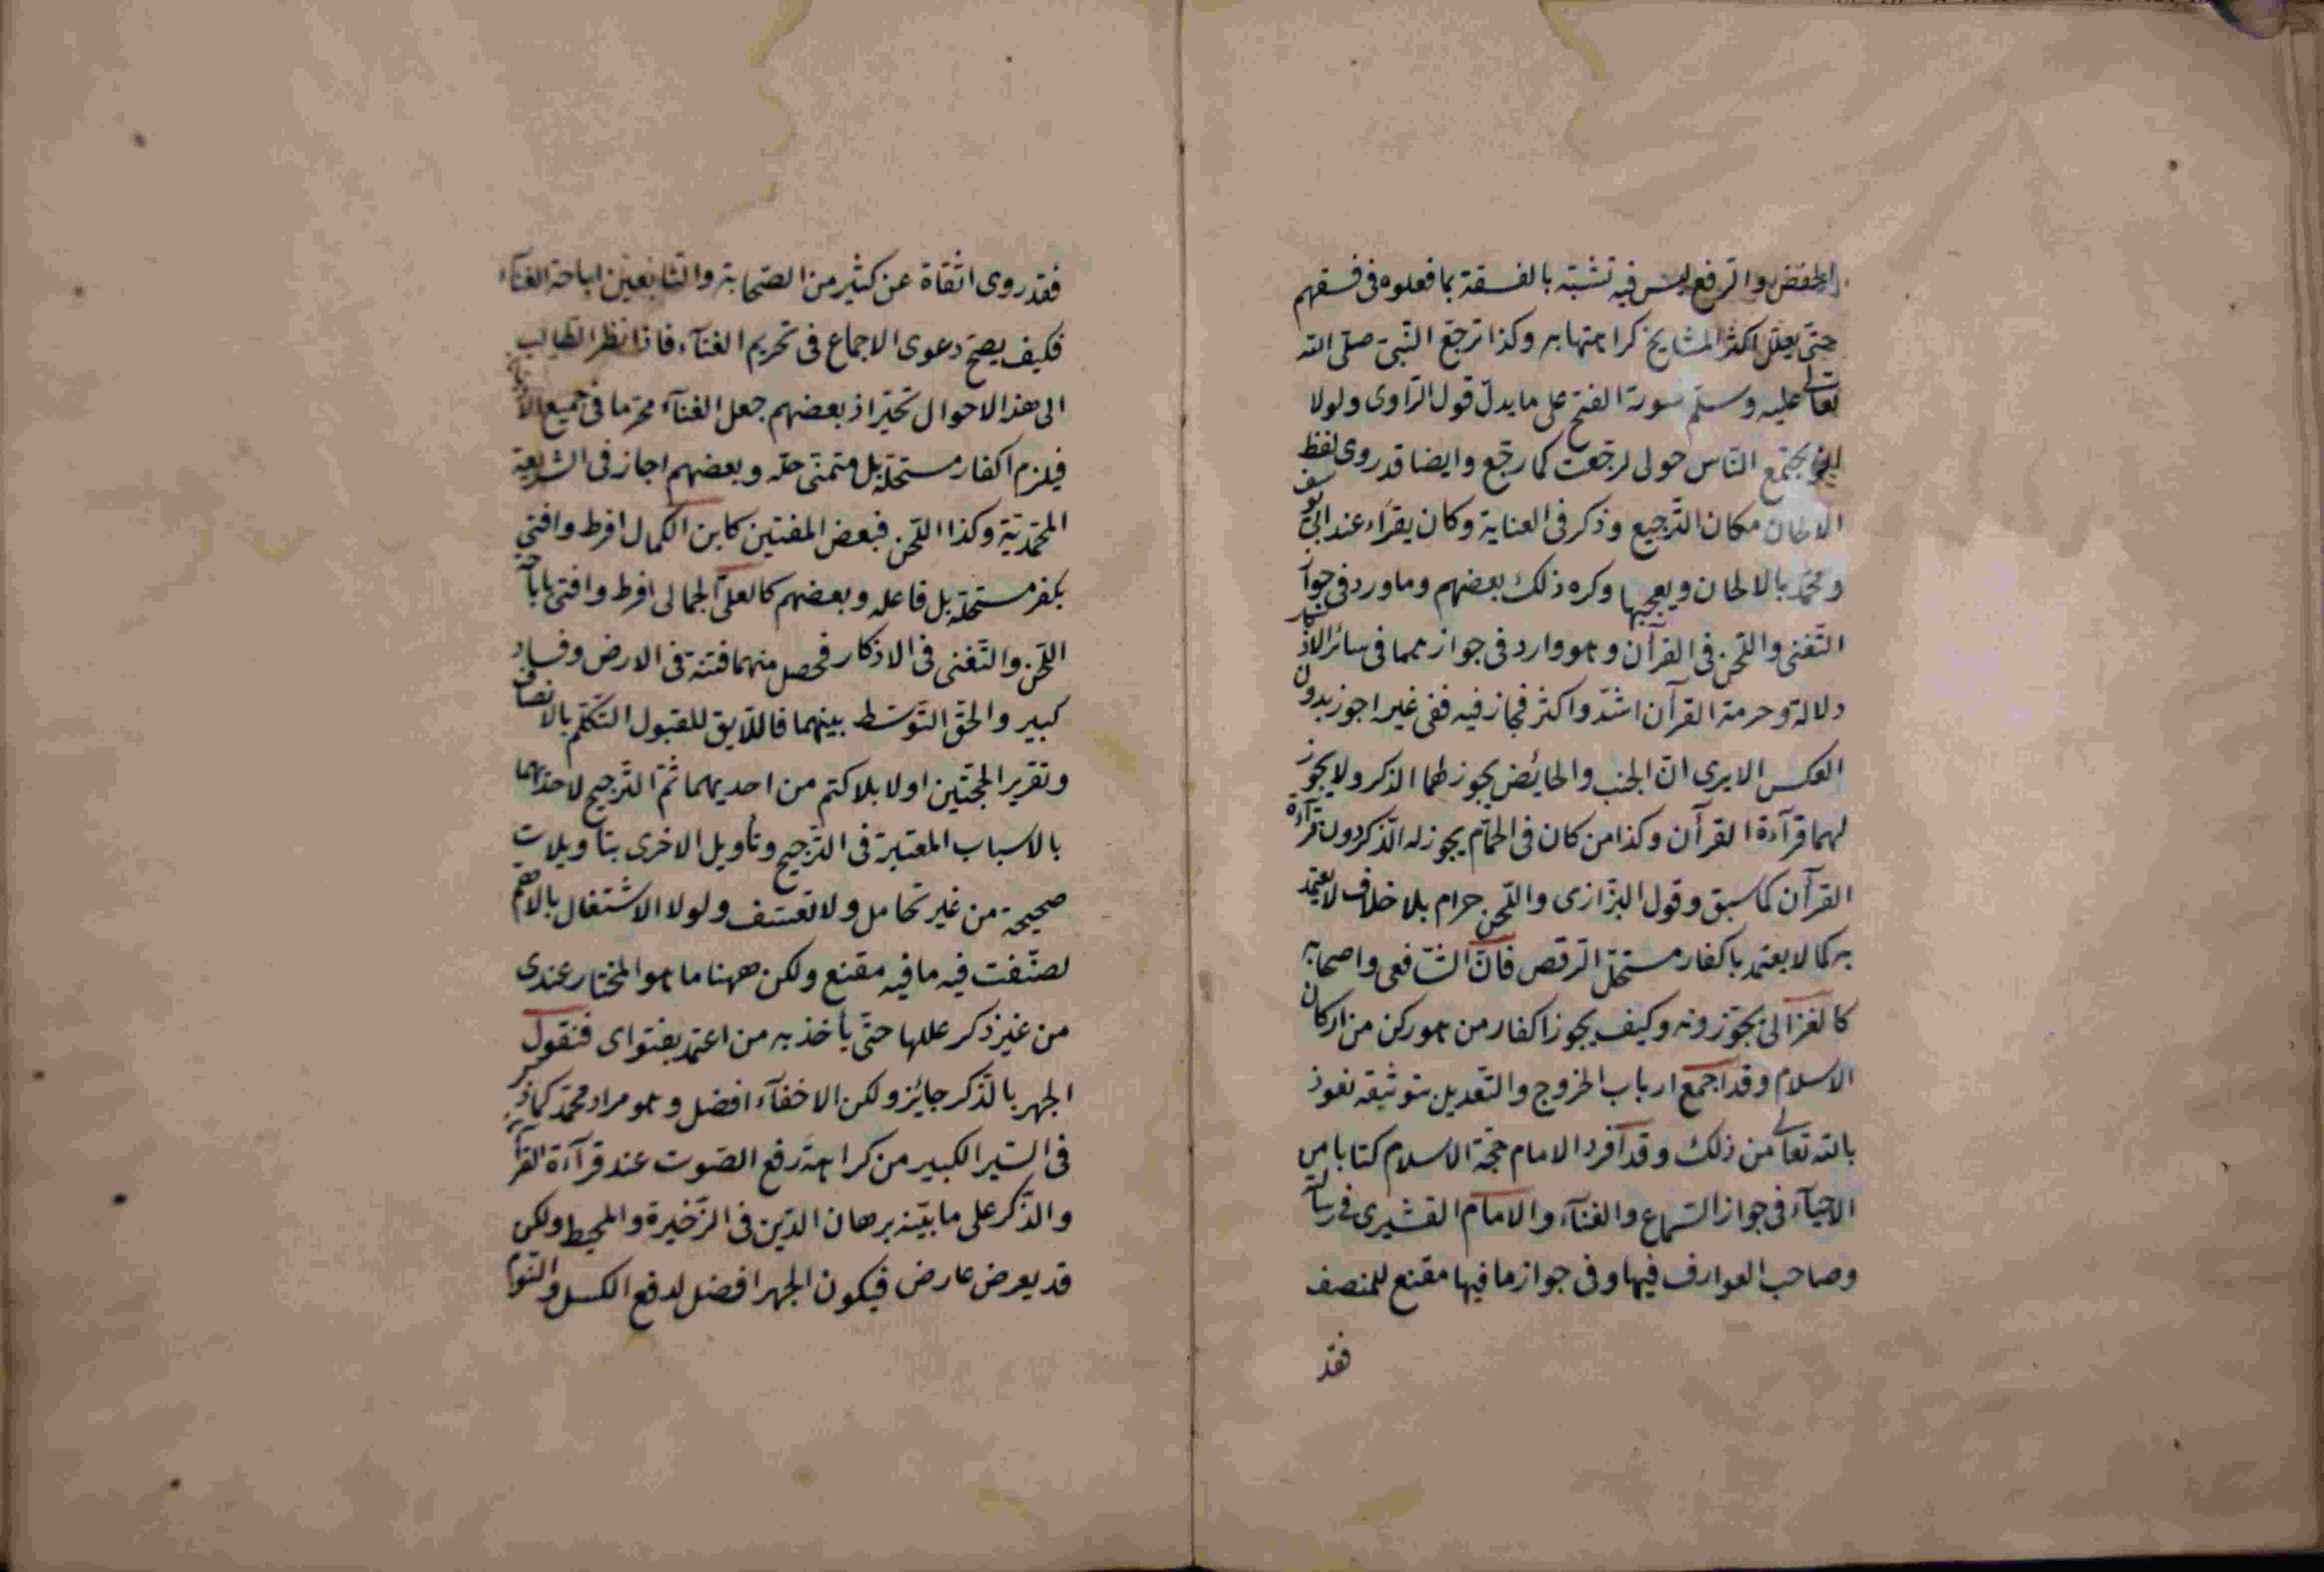 الخفض والرفع ليس فيه تشبه بالفسقة بما فعلوه فى فسقهم
حتى يعلل اكثر المشايخ كراهتها به وكذا ترجع النبى صلى الله
تعالى عليه وسلم سورة الفتح على ما يدل قول الراوى ولولا
يجتمع الناس حولى لرجعت كما رجع وايضا قد روى لفظ
الالحان مكان الترجيع وذكر فى العناية وكان يقرأ عند ابى يوسف
ومحمد بالالحان ويعجبها وكره ذلك بعضهم وما ورد فى جواز
التغنى واللحن فى القرآن وهو وارد فى جوازهما فى سائر الاذكار
دلالة وحرمة القرآن اشد واكثر فجاز فيه ففى غير اجوز بدون
العكس الا يرى ان الجنب والحائض يجوز لهما الذكر ولا يجوز
لهما قرآءة القرآن وكذا من كان فى الحمام يجوز له الذكر دون قرآءة
القرآن كما سبق وقول البزازى واللحن حرام بلا خلاف لا يعتمد
به كما لا يعتمد باكفار مستحل الرقص فان الشافعى واصحابه
كالغزالى يجوزونه وكيف يجوز اكفار من هو ركن من اركان
الاسلام وقد اجمع ارباب الخروج والتعديل بتوثيقه نعوذ
بالله تعالى من ذلك وقد افرد الامام حجة الاسلام كتابا من
الاحيآء فى جواز السماع والغنآء والامام القشيرى فى رسالته
وصاحب العوارف فيها وفى جواز ما فيها مقنع للمنصف
فقد
فقد روى اثقاة عن كثير من الصحابة والتابعين اباحة الغنآء
فكيف يصح دعوى الاجماع فى تحريم الغنآء فاذا نظر الطالب
الى هذا الاحوال تحير اذ بعضهم جعل الغنآء محرما فى جميع الاديان
فيلزم اكفار مستحله بل متمنى حله وبعضهم اجاز فى الشريعة
المحمدية وكذا اللحن فبعض المفتين كابن الكمال افرط وافتى
بكفر مستحله بل فاعله وبعضهم كالعلى الجمالى افرط وافتى باباحة
اللحن والتغنى فى الاذكار فحصل منهما فتنة فى الارض وفساد
كبير والحق التوسط بينهما فاللايق للقبول التكلم بالانصاف
وتقرير الحجتين اولا بلا كتم من احديهما ثم الترجيح لاحديهما
بالاسباب المعتبرة فى الترجيح وتأويل الاخرى بتأويلات
صحيحة من غير تحامل ولا تعسف ولولا الاشتغال بالاهم
لصنفت فيه ما فيه مقنع ولكن ههنا ما هو المختار عندى
من غير ذكر عللها حتى يأخذ به من اعتمد بفتواى فنقول
الجهر بالذكر جائز ولكن الاخفآء افضل وهو مراد محمد كما ذكر
فى السير الكبير من كراهة رفع الصوت عند قرآءة القرآن
والذكر على ما بينه برهان الدين فى الذخيرة والمحيط ولكن
قد يعرض عارض فيكون الجهر افضل لدفع الكسل والنوم